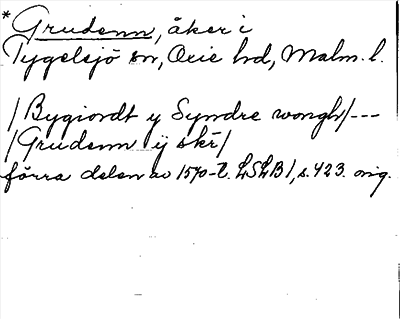 * Grudenn, åker i
Tygelsjö sn, Oxie hd, Malm. l.
/Bygiordt y Syndre wongh/---
/Grudenn ÿ skr/
förra delen av 1570-t. LSLB 1, s. 423. orig.